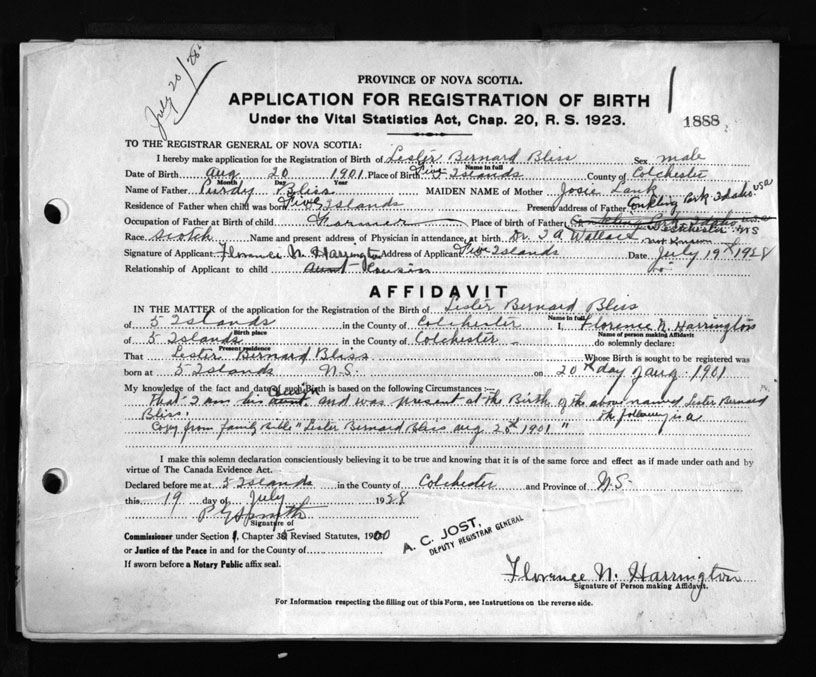 July 20/28
PROVINCE OF NOVA SCOTIA.
APPLICATION FOR REGISTRATION OF BIRTH
Under the Vital Statistics Act, Chap. 20, R. S. 1923.
1888
TO THE REGISTRAR GENERAL OF NOVA SCOTIA:
I hereby make application for the Registration of Birth of Lester Bernard Bliss Sex male
Name in full
Date of Birth Aug 20 1901 Place of Birth Five Islands County of Colchester
Month Day Year
Name of Father Purdy Bliss MAIDEN NAME of Mother Josie Lank
Residence of Father when child was born Five Islands Present address of Father Conkling Park Idaho USA
Occupation of Father at Birth of child Farmer Place of Birth of Father Conkling Park Idaho U.S.A. Colchester NS
Race Scotch Name and present address of Physician in attendance at birth Dr. T A Wallace not known
Signature of Applicant Florence N. Harrington Address of Applicant Five Islands Date July 19th 1928
Relationship of Applicant to child Aunt Cousin
AFFIDAVIT
IN THE MATTER of the application for the Registration of the Birth of Lester Bernard Bliss
Name in full
of 5 Islands in the County of Colchester I, Florence N. Harrington
Birth place Name of person making Affidavit
of 5 Islands in the County of Colchester do solemnly declare:
Present residence
That Lester Bernard Bliss Whose Birth is sought to be registered was
born at 5 Islands N.S. on 20th day of Aug. 1901
My knowledge of the fact and date of such Birth is based on the following Circumstances:—
That I am his aunt Cousin and was present at the Birth of the above named Lester Bernard
Bliss. The following is a
Copy from family Bible "Lester Bernard Bliss Aug 20th 1901"
I make this solemn declaration conscientiously believing it to be true and knowing that it is of the same force and effect as if made under oath and by
virtue of The Canada Evidence Act.
Declared before me at 5 Islands in the County of Colchester and Province of N.S.
this 19 day of July 1928
Signature of
Commissioner under Section 1, Chapter 35 Revised Statutes, 1900
or Justice of the Peace in and for the County of
If sworn before a Notary Public affix seal.
A. C. JOST,
DEPUTY REGISTRAR GENERAL
Florence N. Harrington
Signature of Person making Affidavit.
For Information respecting the filling out of this Form, see Instructions on the reverse side.